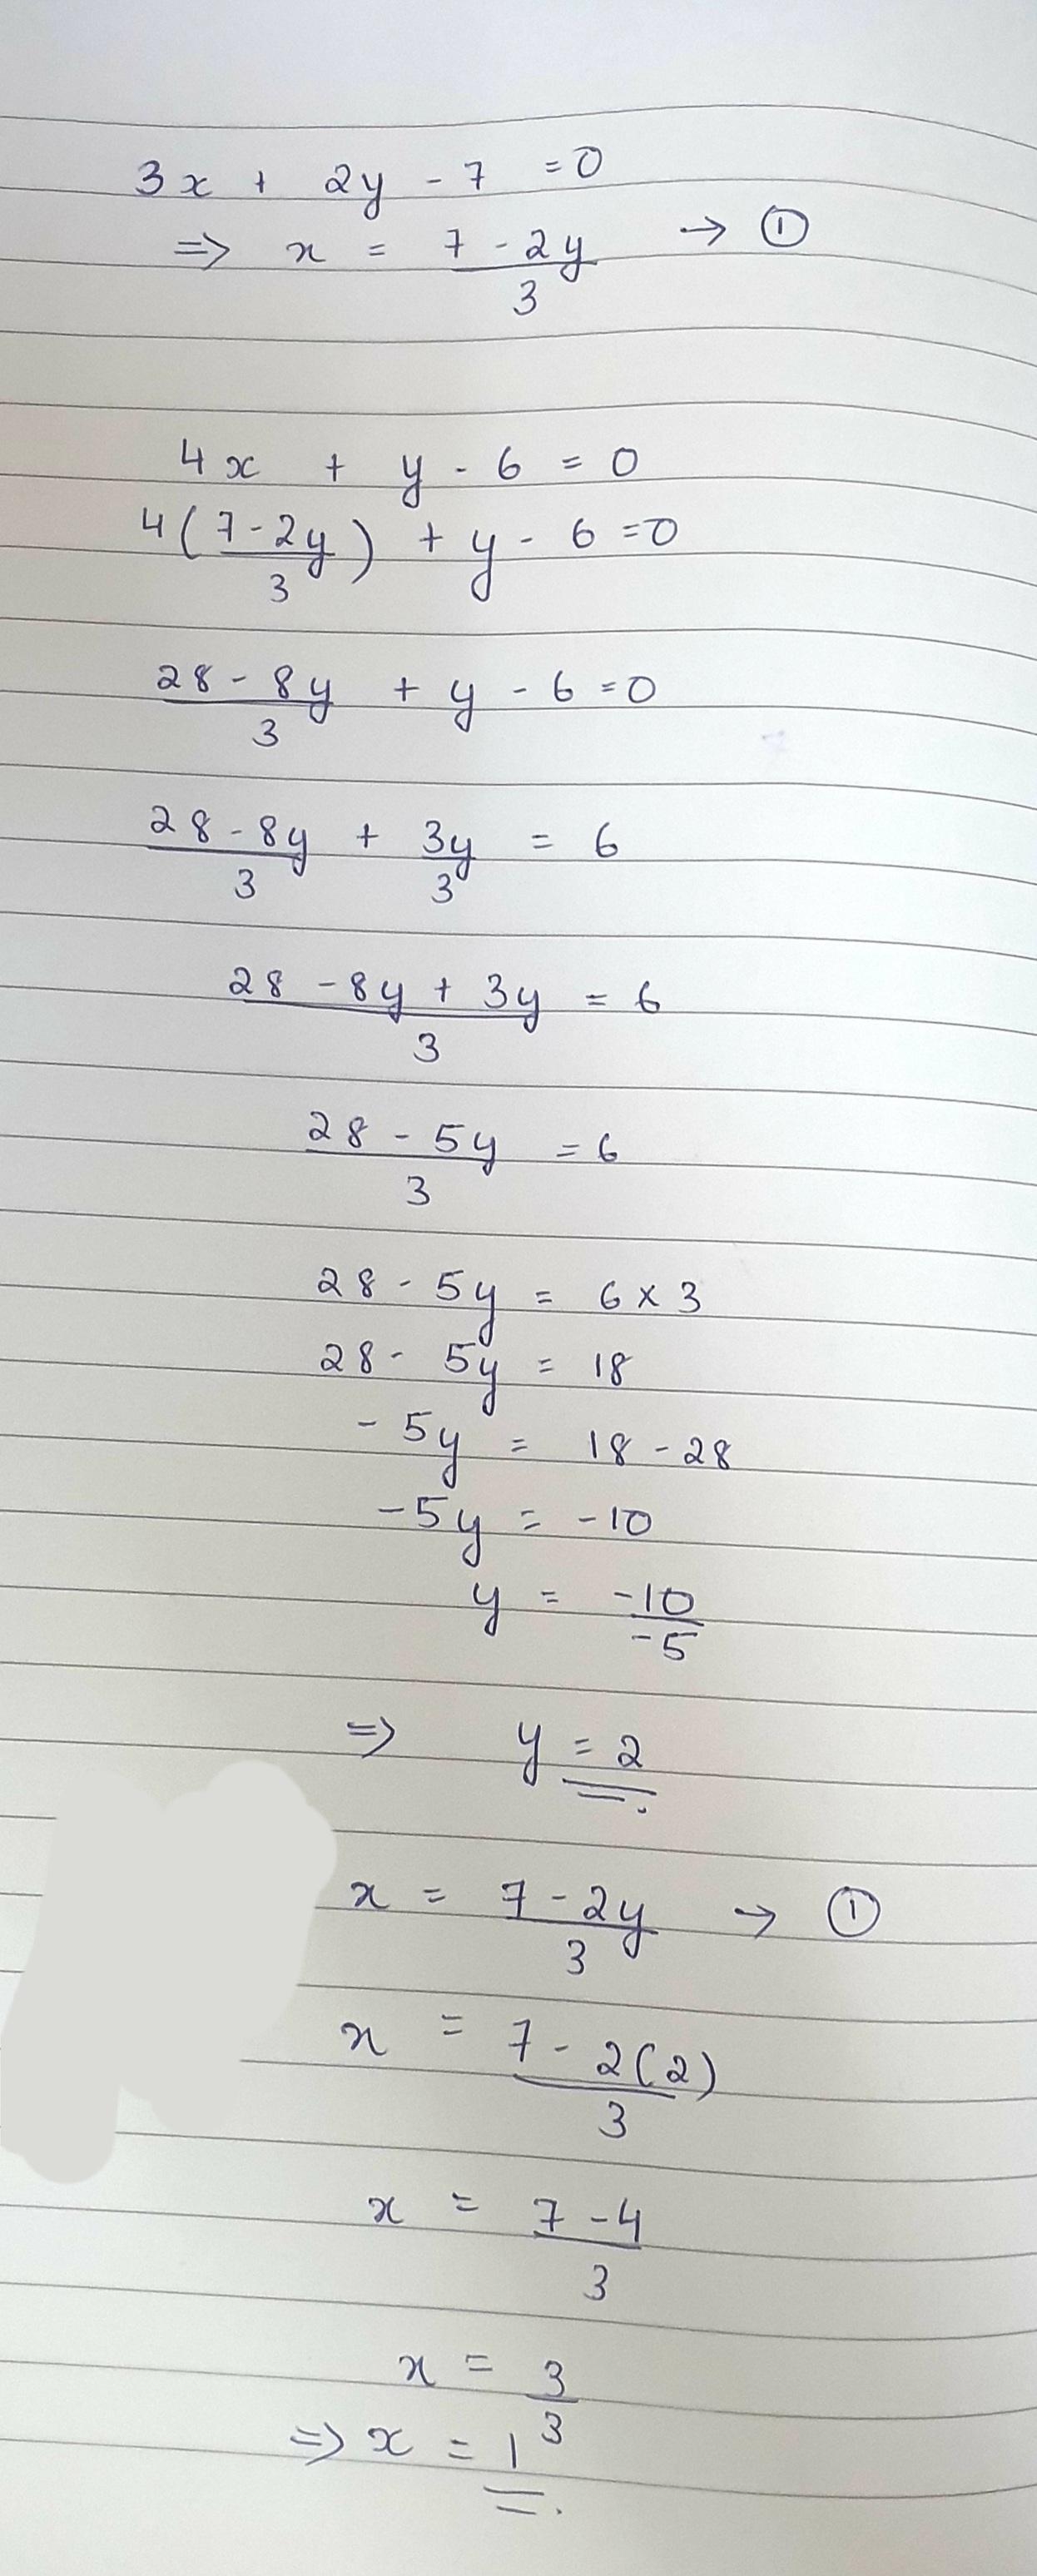 3x + 2y - 7 = 0
⇒ x = (7 - 2y)/3 → ①
4x + y - 6 = 0
4((7 - 2y)/3) + y - 6 = 0
(28 - 8y)/3 + y - 6 = 0
(28 - 8y)/3 + 3y/3 = 6
(28 - 8y + 3y)/3 = 6
(28 - 5y)/3 = 6
28 - 5y = 6 × 3
28 - 5y = 18
-5y = 18 - 28
-5y = -10
y = -10/-5
⇒ y = 2
x = (7 - 2y)/3 → ①
x = (7 - 2(2))/3
x = (7 - 4)/3
x = 3/3
⇒ x = 1